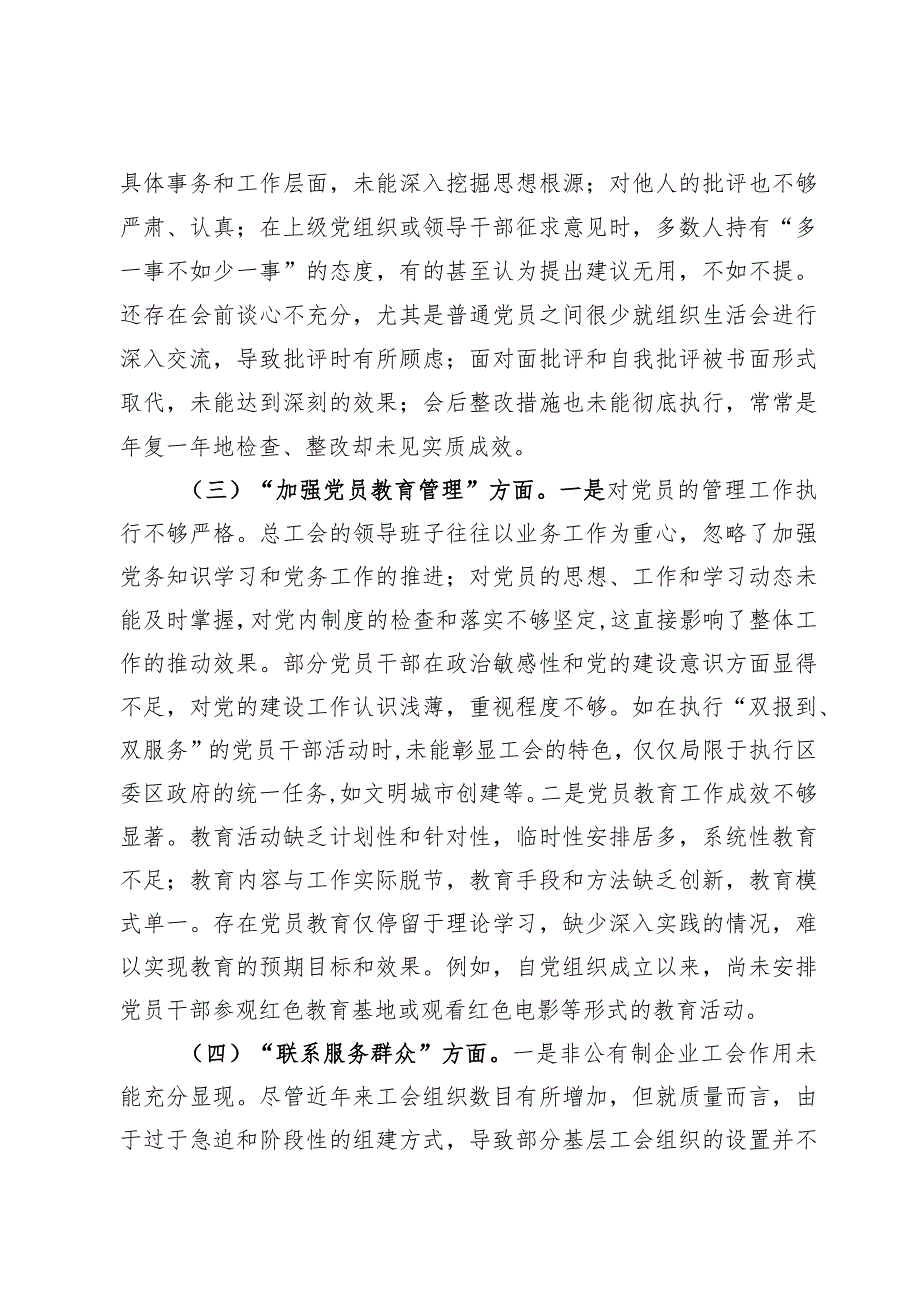 具体事务和工作层面，未能深入挖掘思想根源；对他人的批评也不够
严肃、认真；在上级党组织或领导干部征求意见时，多数人持有“多
一事不如少一事”的态度，有的甚至认为提出建议无用，不如不提。
还存在会前谈心不充分，尤其是普通党员之间很少就组织生活会进行
深入交流，导致批评时有所顾虑；面对面批评和自我批评被书面形式
取代，未能达到深刻的效果；会后整改措施也未能彻底执行，常常是
年复一年地检查、整改却未见实质成效。
（三）“加强党员教育管理”方面。一是对党员的管理工作执
行不够严格。总工会的领导班子往往以业务工作为重心，忽略了加强
党务知识学习和党务工作的推进；对党员的思想、工作和学习动态未
能及时掌握，对党内制度的检查和落实不够坚定,这直接影响了整体工
作的推动效果。部分党员干部在政治敏感性和党的建设意识方面显得
不足，对党的建设工作认识浅薄，重视程度不够。如在执行“双报到、
双服务”的党员干部活动时,未能彰显工会的特色，仅仅局限于执行区
委区政府的统一任务,如文明城市创建等。二是党员教育工作成效不够
显著。教育活动缺乏计划性和针对性，临时性安排居多，系统性教育
不足；教育内容与工作实际脱节，教育手段和方法缺乏创新，教育模
式单一。存在党员教育仅停留于理论学习，缺少深入实践的情况，难
以实现教育的预期目标和效果。例如，自党组织成立以来，尚未安排
党员干部参观红色教育基地或观看红色电影等形式的教育活动。
（四）“联系服务群众”方面。一是非公有制企业工会作用未
能充分显现。尽管近年来工会组织数目有所增加，但就质量而言，由
于过于急迫和阶段性的组建方式，导致部分基层工会组织的设置并不